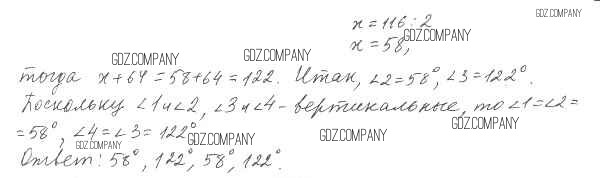 x = 116 : 2
GDZ.COMPANY
x = 58,
GDZ.COMPANY
GDZ.COMPANY
GDZ.COMPANY
тогда x + 64 = 58 + 64 = 122. Итак, ∠2 = 58°, ∠3 = 122°.
Поскольку ∠1 и ∠2, ∠3 и ∠4 - вертикальные, то ∠1 = ∠2 =
= 58°, ∠4 = ∠3 = 122°
GDZ.COMPANY
GDZ.COMPANY
GDZ.COMPANY
GDZ.COMPANY
Ответ: 58°, 122°, 58°, 122°.